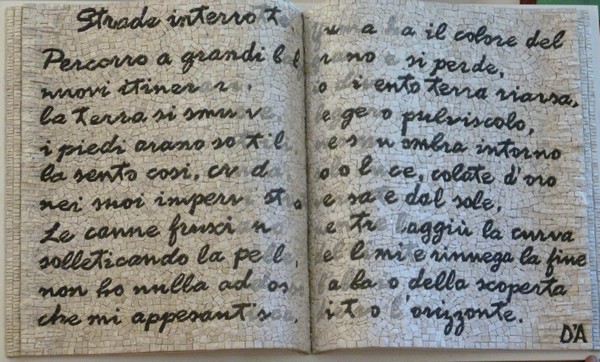 Strade interrotte
Percorro a grandi
nuovi itinerari,
la terra si smuove,
i piedi arano sottili,
la sento così, cruda,
nei suoi impervi
Le canne frusciano
solleticando la pelle,
non ho nulla addosso
che mi appesantisca.
ha il colore del
grano e si perde,
io divento terra riarsa,
leggero pulviscolo,
ombra intorno
solo luce, colate d'oro
versate dal sole,
mentre laggiù la curva
del limite rinnega la fine
della scoperta
l'orizzonte.
D'A